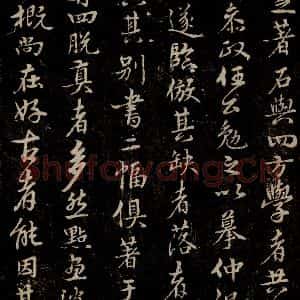 著石與四方學者共
泰政任公勉之以摹仲
遂臨倣其缺者落者
其別書二幅俱著于
四脫真者多然點畫
概尚在好古者能因其
Shufawang.Cn